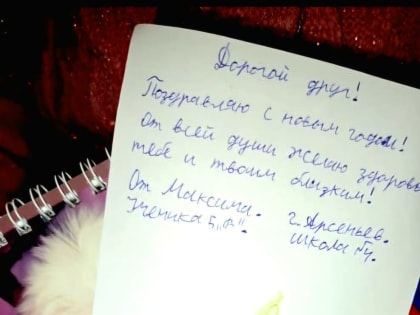 Дорогой друг!
Поздравляю с новым годом!
От всей души желаю здоровь
тебе и твоим близким!
От Максима. г. Арсеньев.
Ученика 5 „А". школа №4.